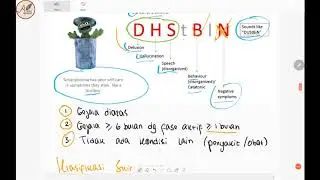 DHStBIN
Sounds like "DUSBIN"
Delusion
Hallucination
Speech (disorganized)
Behaviour (disorganized)/ Catatonic
Negative symptoms
Schizophrenia has poor self-care
in sometimes they smell like a
dustbin
1 Gejala diatas
2 Gejala ≥ 6 bulan dg fase aktif ≥ 1 bulan
3 Tidak ada kondisi lain (penyakit/obat)
Klasifikasi